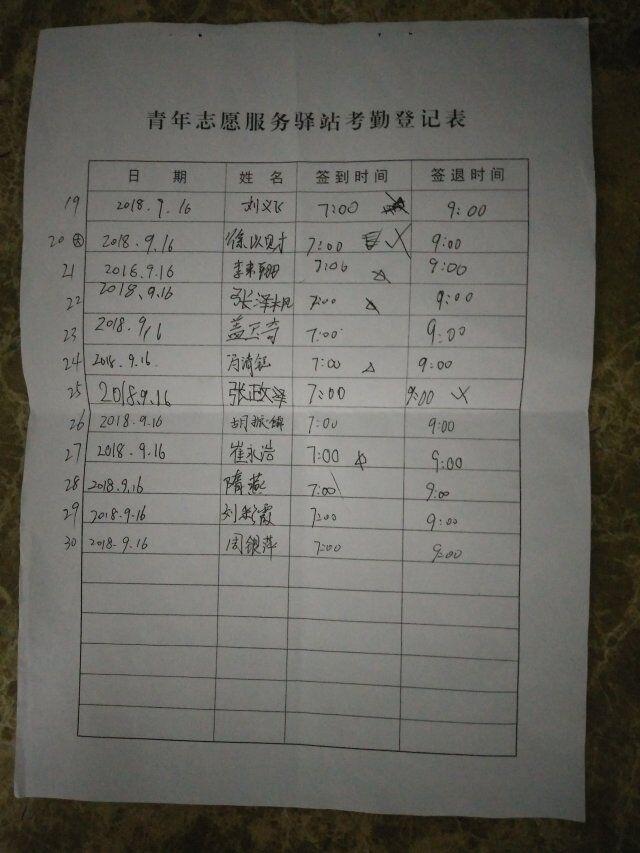 青年志愿服务驿站考勤登记表
日 期 姓 名 签到时间 签退时间
19 2018.9.16 刘义飞 7:00 9:00
20 2018.9.16 徐以见才 7:00 9:00
21 2018.9.16 李 翔 7:00 9:00
22 2018.9.16 张泽 7:00 9:00
23 2018.9.16 盖卫奇 7:00 9:00
24 2018.9.16 冯清钰 7:00 9:00
25 2018.9.16 张政泽 7:00 9:00
26 2018.9.16 胡振锦 7:00 9:00
27 2018.9.16 崔永浩 7:00 9:00
28 2018.9.16 隋燕 7:00 9:00
29 2018.9.16 刘彩霞 7:00 9:00
30 2018.9.16 周银萍 7:00 9:00